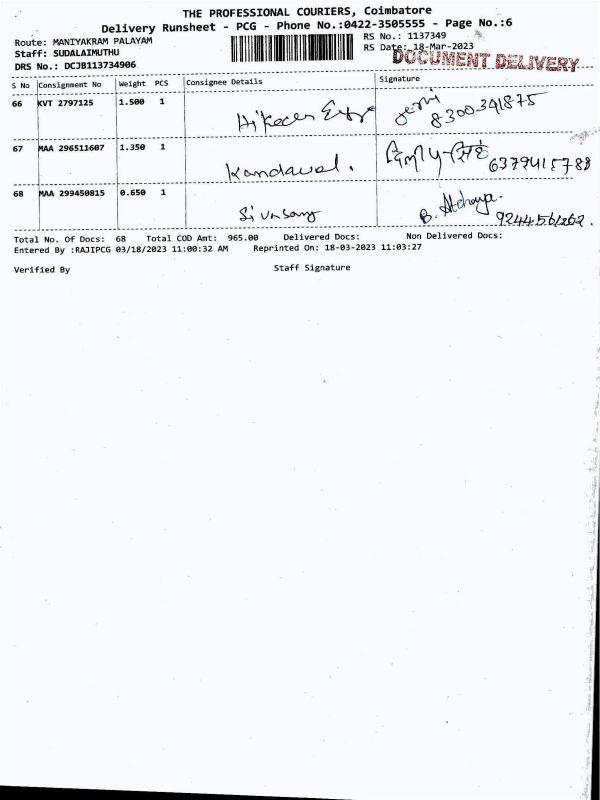 THE PROFESSIONAL COURIERS, Coimbatore
Delivery Runsheet - PCG - Phone No.:0422-3505555 - Page No.:6
Route: MANIYAKRAM PALAYAM
RS No.: 1137349
Staff: SUDALAIMUTHU
RS Date: 18-Mar-2023
DOCUMENT DELIVERY
DRS No.: DCJB113734906
S No Consignment No Weight PCS Consignee Details Signature
66 KVT 2797125 1.500 1 8300391875
67 MAA 296511607 1.350 1 Kandaval. 6379415788
68 MAA 299450815 0.650 1 B.
Total No. Of Docs: 68 Total COD Amt: 965.00 Delivered Docs: Non Delivered Docs:
Entered By :RAJIPCG 03/18/2023 11:00:32 AM Reprinted On: 18-03-2023 11:03:27
Verified By Staff Signature